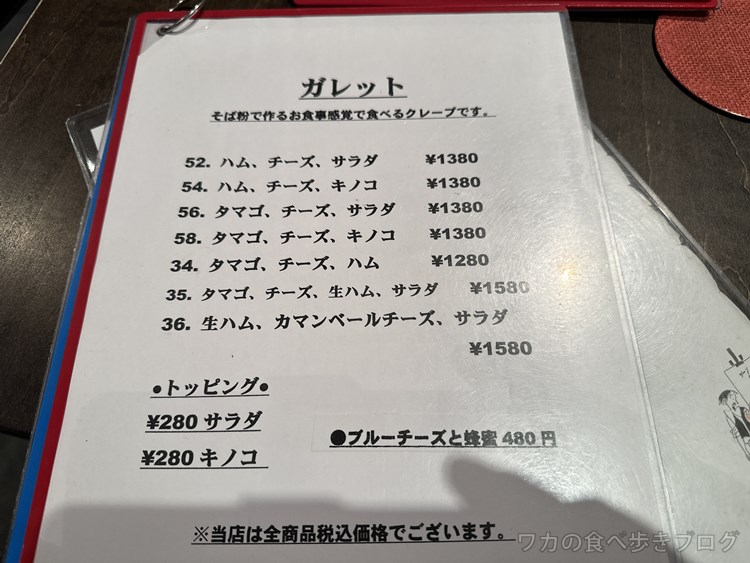 ガレット
そば粉で作るお食事感覚で食べるクレープです。
52. ハム、チーズ、サラダ ¥1380
54. ハム、チーズ、キノコ ¥1380
56. タマゴ、チーズ、サラダ ¥1380
58. タマゴ、チーズ、キノコ ¥1380
34. タマゴ、チーズ、ハム ¥1280
35. タマゴ、チーズ、生ハム、サラダ ¥1580
36. 生ハム、カマンベールチーズ、サラダ
¥1580
●トッピング●
¥280 サラダ
¥280 キノコ
●ブルーチーズと蜂蜜 480 円
※当店は全商品税込価格でございます。
ワカの食べ歩きブログ